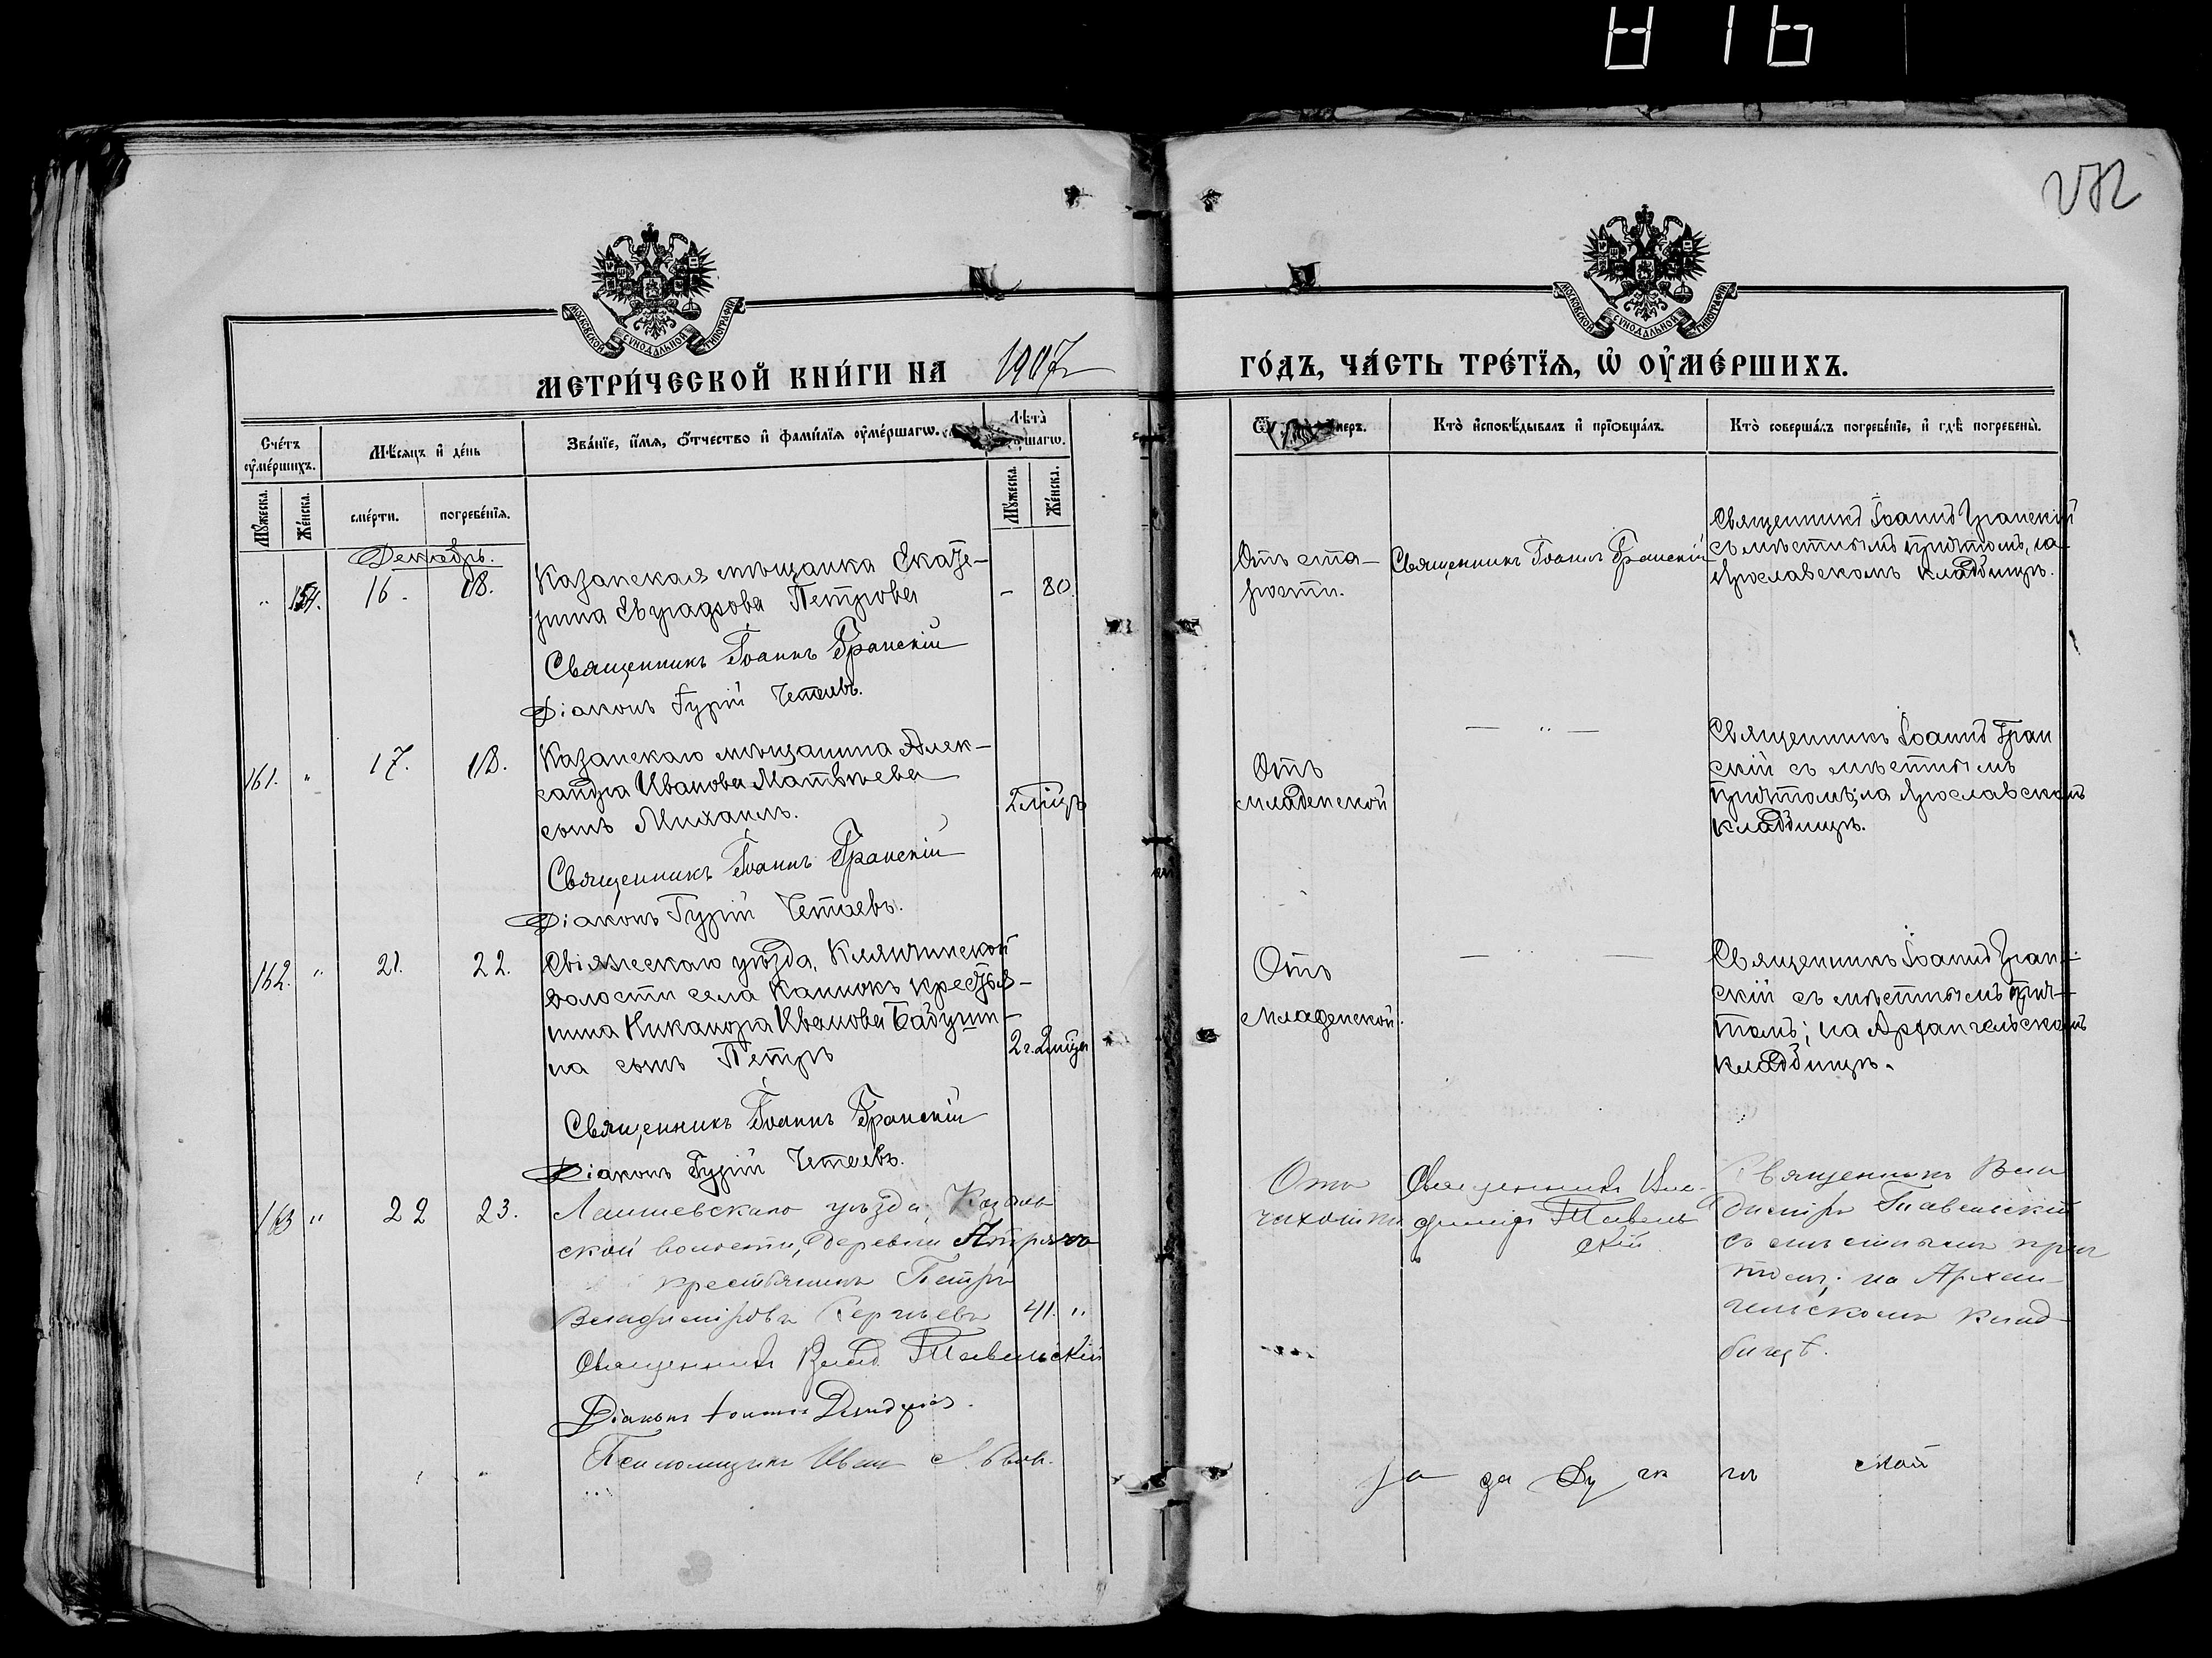 272
МОСКОВСКОЙ СѴНОДАЛЬНОЙ ТИПОГРАФІИ
МОСКОВСКОЙ СѴНОДАЛЬНОЙ ТИПОГРАФІИ
МЕТРИ́ЧЕСКОЙ КНИ́ГИ НА 1907 ГО́ДЪ, ЧА́СТЬ ТРЕ́ТЇѦ, Ѡ҆ ОУ҆МЕ́РШИХЪ.
Сче́тъ оу҆ме́ршихъ.
Мꙋ́жеска.
Же́нска.
Мѣ́сѧцъ и҆ де́нь
сме́рти.
погребе́нїѧ.
Зва́нїе, и҆́мѧ, ѻ҆́тчество и҆ фами́лїѧ оу҆ме́ршагѡ.
Лѣ́та
Мꙋ́жеска.
Же́нска.
Кто̀ и҆сповѣ́дывалъ и҆ прїѡбща́лъ.
Кто̀ соверша́лъ погребе́нїе, и҆ гдѣ̀ погребены̀.
Декабрь.
" 154. 16. 18.
Казанская мѣщанка Екате-
рина Евграфова Петрова
- 80
Священникъ Іоаннъ Гранскій
Діаконъ Гурій Четаевъ.
Отъ ста-
рости.
Священникъ Іоаннъ Гранскій
Священникъ Іоаннъ Гранскій
съ мѣстнымъ причтомъ, на
Ярославскомъ кладбищѣ.
161. " 17. 18.
Казанскаго мѣщанина Алек-
сандра Иванова Матвѣева
сынъ Михаилъ.
2 мѣц.
Священникъ Іоаннъ Гранскій
Діаконъ Гурій Четаевъ.
Отъ
младенской
— " —
Священникъ Іоаннъ Гран
скій съ мѣстнымъ
причтомъ; на Ярославскомъ
кладбищѣ.
162. " 21. 22.
Свіяжскаго уѣзда, Клянчинской
волости села Каинокъ крестья-
нина Никанора Иванова Бадушин-
на сынъ Петръ
2 г. 2 мѣц.
Священникъ Іоаннъ Гранскій
Діаконъ Гурій Четаевъ.
Отъ
младенской.
— " —
Священникъ Іоаннъ Гран-
скій съ мѣстнымъ прич-
томъ; на Архангельскомъ
кладбищѣ.
163 " 22 23.
Лаишевскаго уѣзда,
ской волости, деревни
крестьянинъ Петръ
Владиміровъ Сергѣевъ 41. "
Священникъ Влад.
Діаконъ
Псаломщикъ Иван
Отъ
чахотки
Священникъ Вла-
диміръ
скій
Священникъ Вла
диміръ
съ мѣстнымъ прич
томъ; на Архан-
гельскомъ клад-
бищѣ.
ской